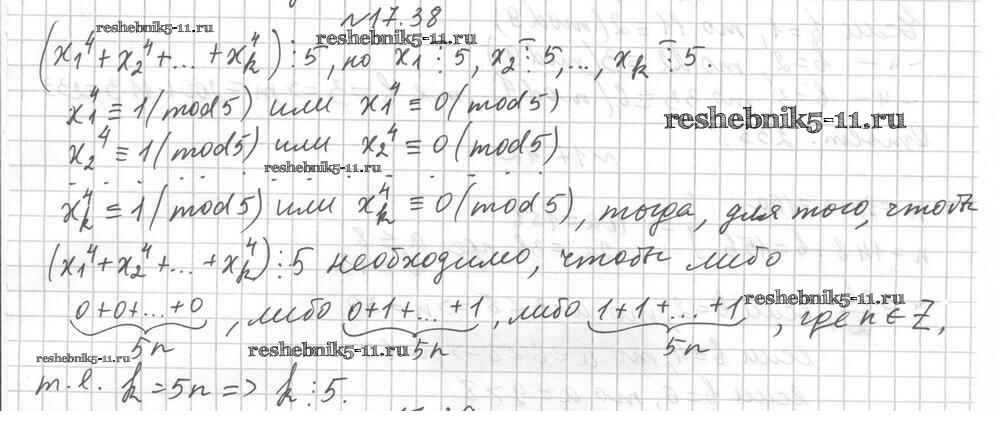 №17.38
reshebnik5-11.ru
reshebnik5-11.ru
(x₁⁴ + x₂⁴ + ... + x_k⁴) ⋮ 5, но x₁ ⋮̅ 5, x₂ ⋮̅ 5, ..., x_k ⋮̅ 5.
x₁⁴ ≡ 1 (mod 5) или x₁⁴ ≡ 0 (mod 5)
reshebnik5-11.ru
x₂⁴ ≡ 1 (mod 5) или x₂⁴ ≡ 0 (mod 5)
reshebnik5-11.ru
- - - - - - - - - - - - - -
x_k⁴ ≡ 1 (mod 5) или x_k⁴ ≡ 0 (mod 5), тогда, для того, чтобы
(x₁⁴ + x₂⁴ + ... + x_k⁴) ⋮ 5 необходимо, чтобы либо
reshebnik5-11.ru
0+0+...+0, либо 0+1+...+1, либо 1+1+...+1, где n ∈ Z,
5n 5n 5n
reshebnik5-11.ru
reshebnik5-11.ru
т.е. k = 5n => k ⋮ 5.